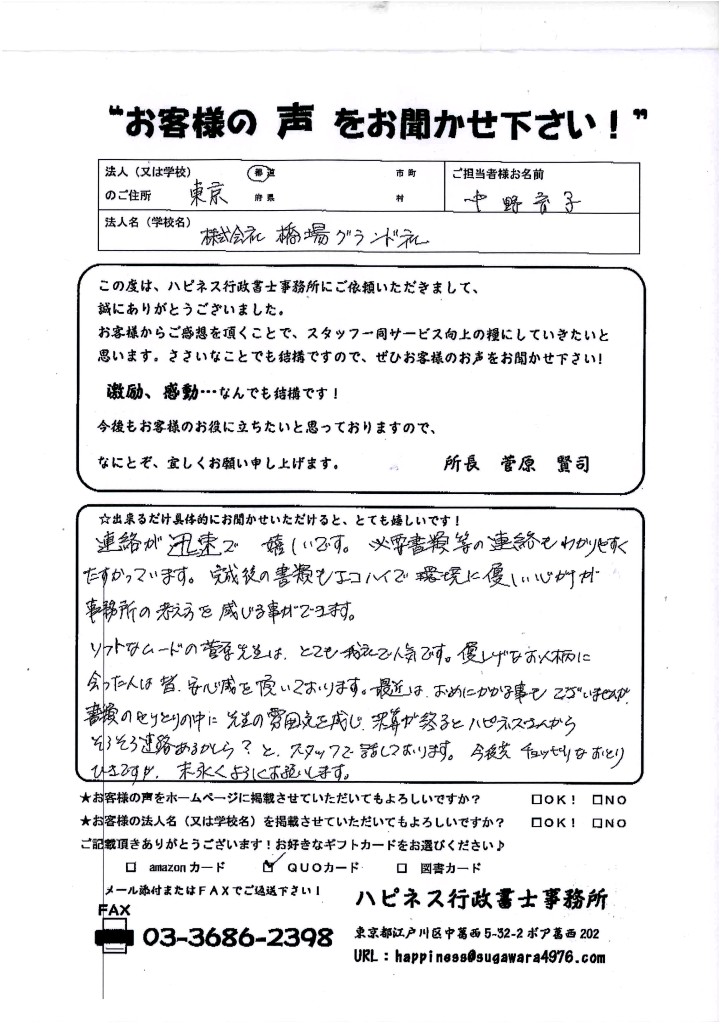 “お客様の 声 をお聞かせ下さい！”
法人（又は学校）
のご住所
東京
都 道
府 県
市 町
村
ご担当者様お名前
中野 子
法人名（学校名）
株式会社 橋場グランド社
この度は、ハピネス行政書士事務所にご依頼いただきまして、
誠にありがとうございました。
お客様からご感想を頂くことで、スタッフ一同サービス向上の糧にしていきたいと
思います。ささいなことでも結構ですので、ぜひお客様のお声をお聞かせ下さい!
激励、感動…なんでも結構です！
今後もお客様のお役に立ちたいと思っておりますので、
なにとぞ、宜しくお願い申し上げます。
所長 菅原 賢司
☆出来るだけ具体的にお聞かせいただけると、とても嬉しいです！
連絡が迅速で 嬉しいです。 必要書類等の連絡もわかりやすく
たすかっています。完成後の書類もエコハイで環境に優しい心がけが
事務所の考え方を感じる事ができます。
ソフトなムードの菅原先生は、とても我社で人気です。優しげなお人柄に
会った人は皆、安心感を頂いております。最近は、おめにかかる事も ございませんが、
書類のやりとりの中に 先生の雰囲気を感じ、決算が終るとハピネスさんから
そろそろ連絡あるかしら？と、スタッフで話しております。今後共 チョッピリなおとり
ひきですが、末永くよろしくお願いします。
★お客様の声をホームページに掲載させていただいてもよろしいですか？ □ＯＫ！ □ＮＯ
★お客様の法人名（又は学校名）を掲載させていただいてもよろしいですか？ □ＯＫ！ □ＮＯ
ご記載頂きありがとうございます！お好きなギフトカードをお選びください♪
□ amazonカード ☑ ＱＵＯカード □ 図書カード
メール添付またはＦＡＸでご返送下さい！
FAX
03-3686-2398
ハピネス行政書士事務所
東京都江戸川区中葛西5-32-2ボア葛西202
URL：happiness@sugawara4976.com